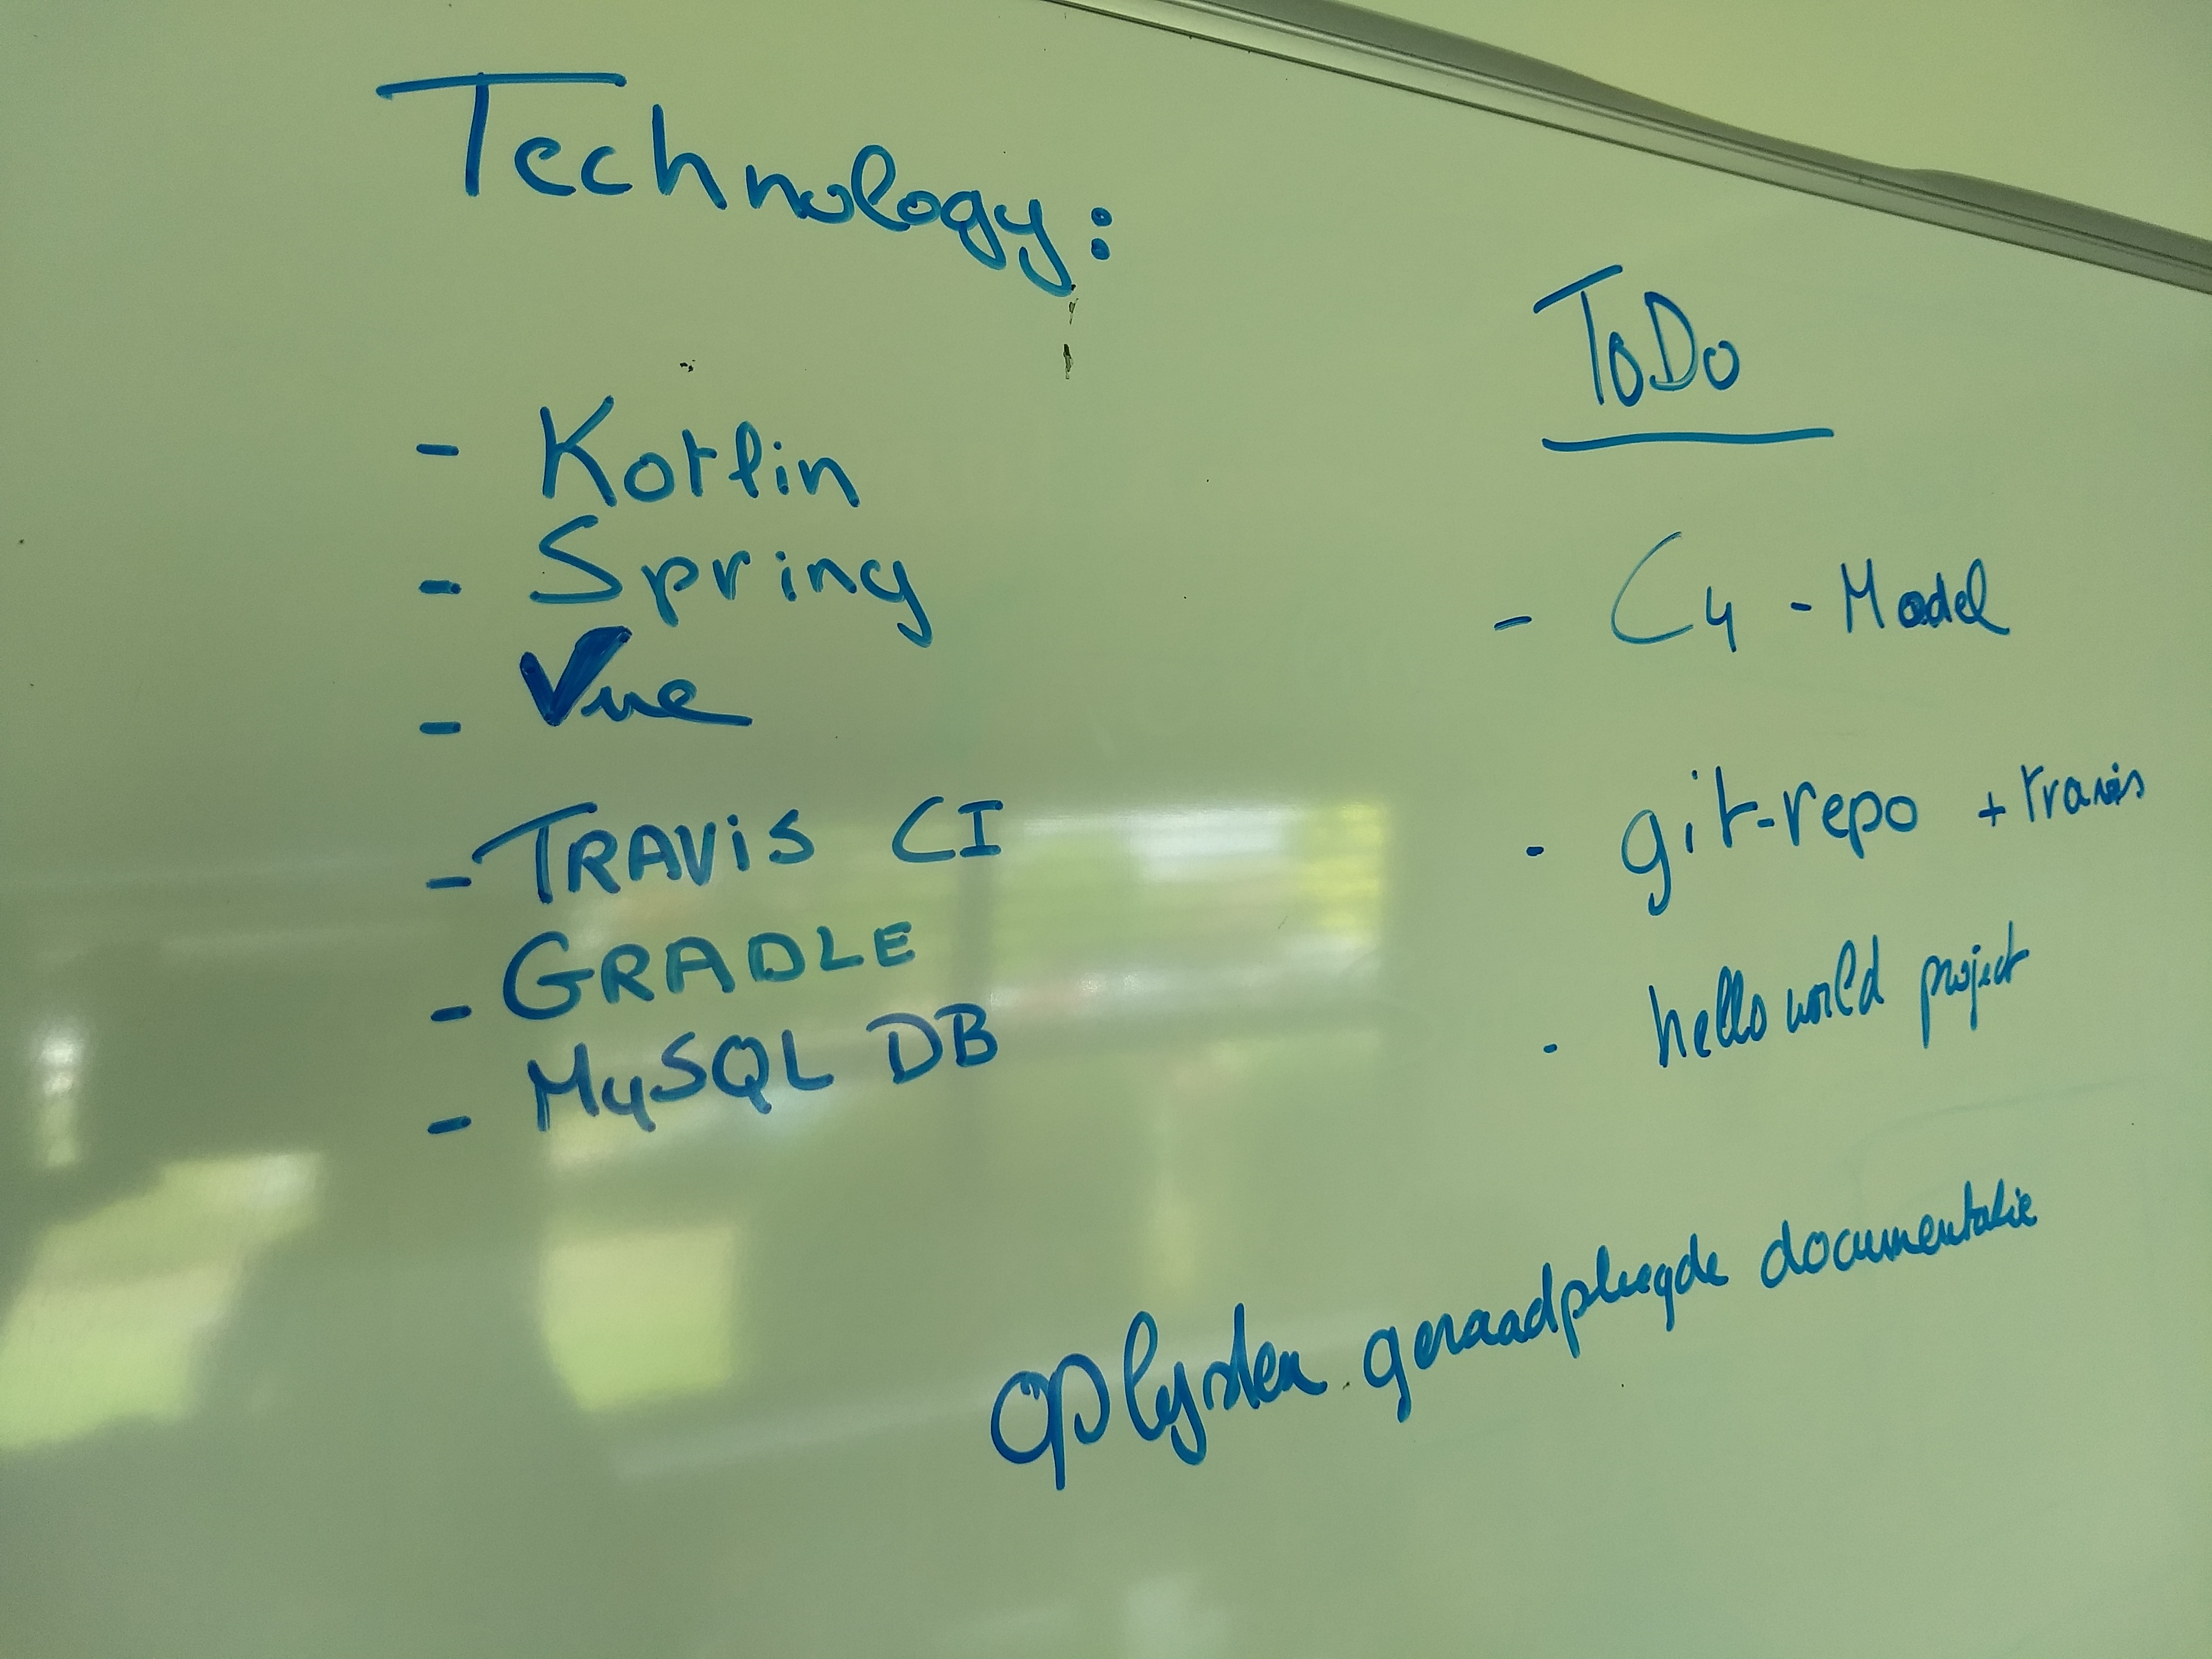 Technology:
- Kotlin
- Spring
- Vue
- TRAViS CI
- GRADLE
- MySQL DB
ToDo
- C4 - Model
- git-repo + travis
- hello world project
oplijsten geraadpleegde documentatie